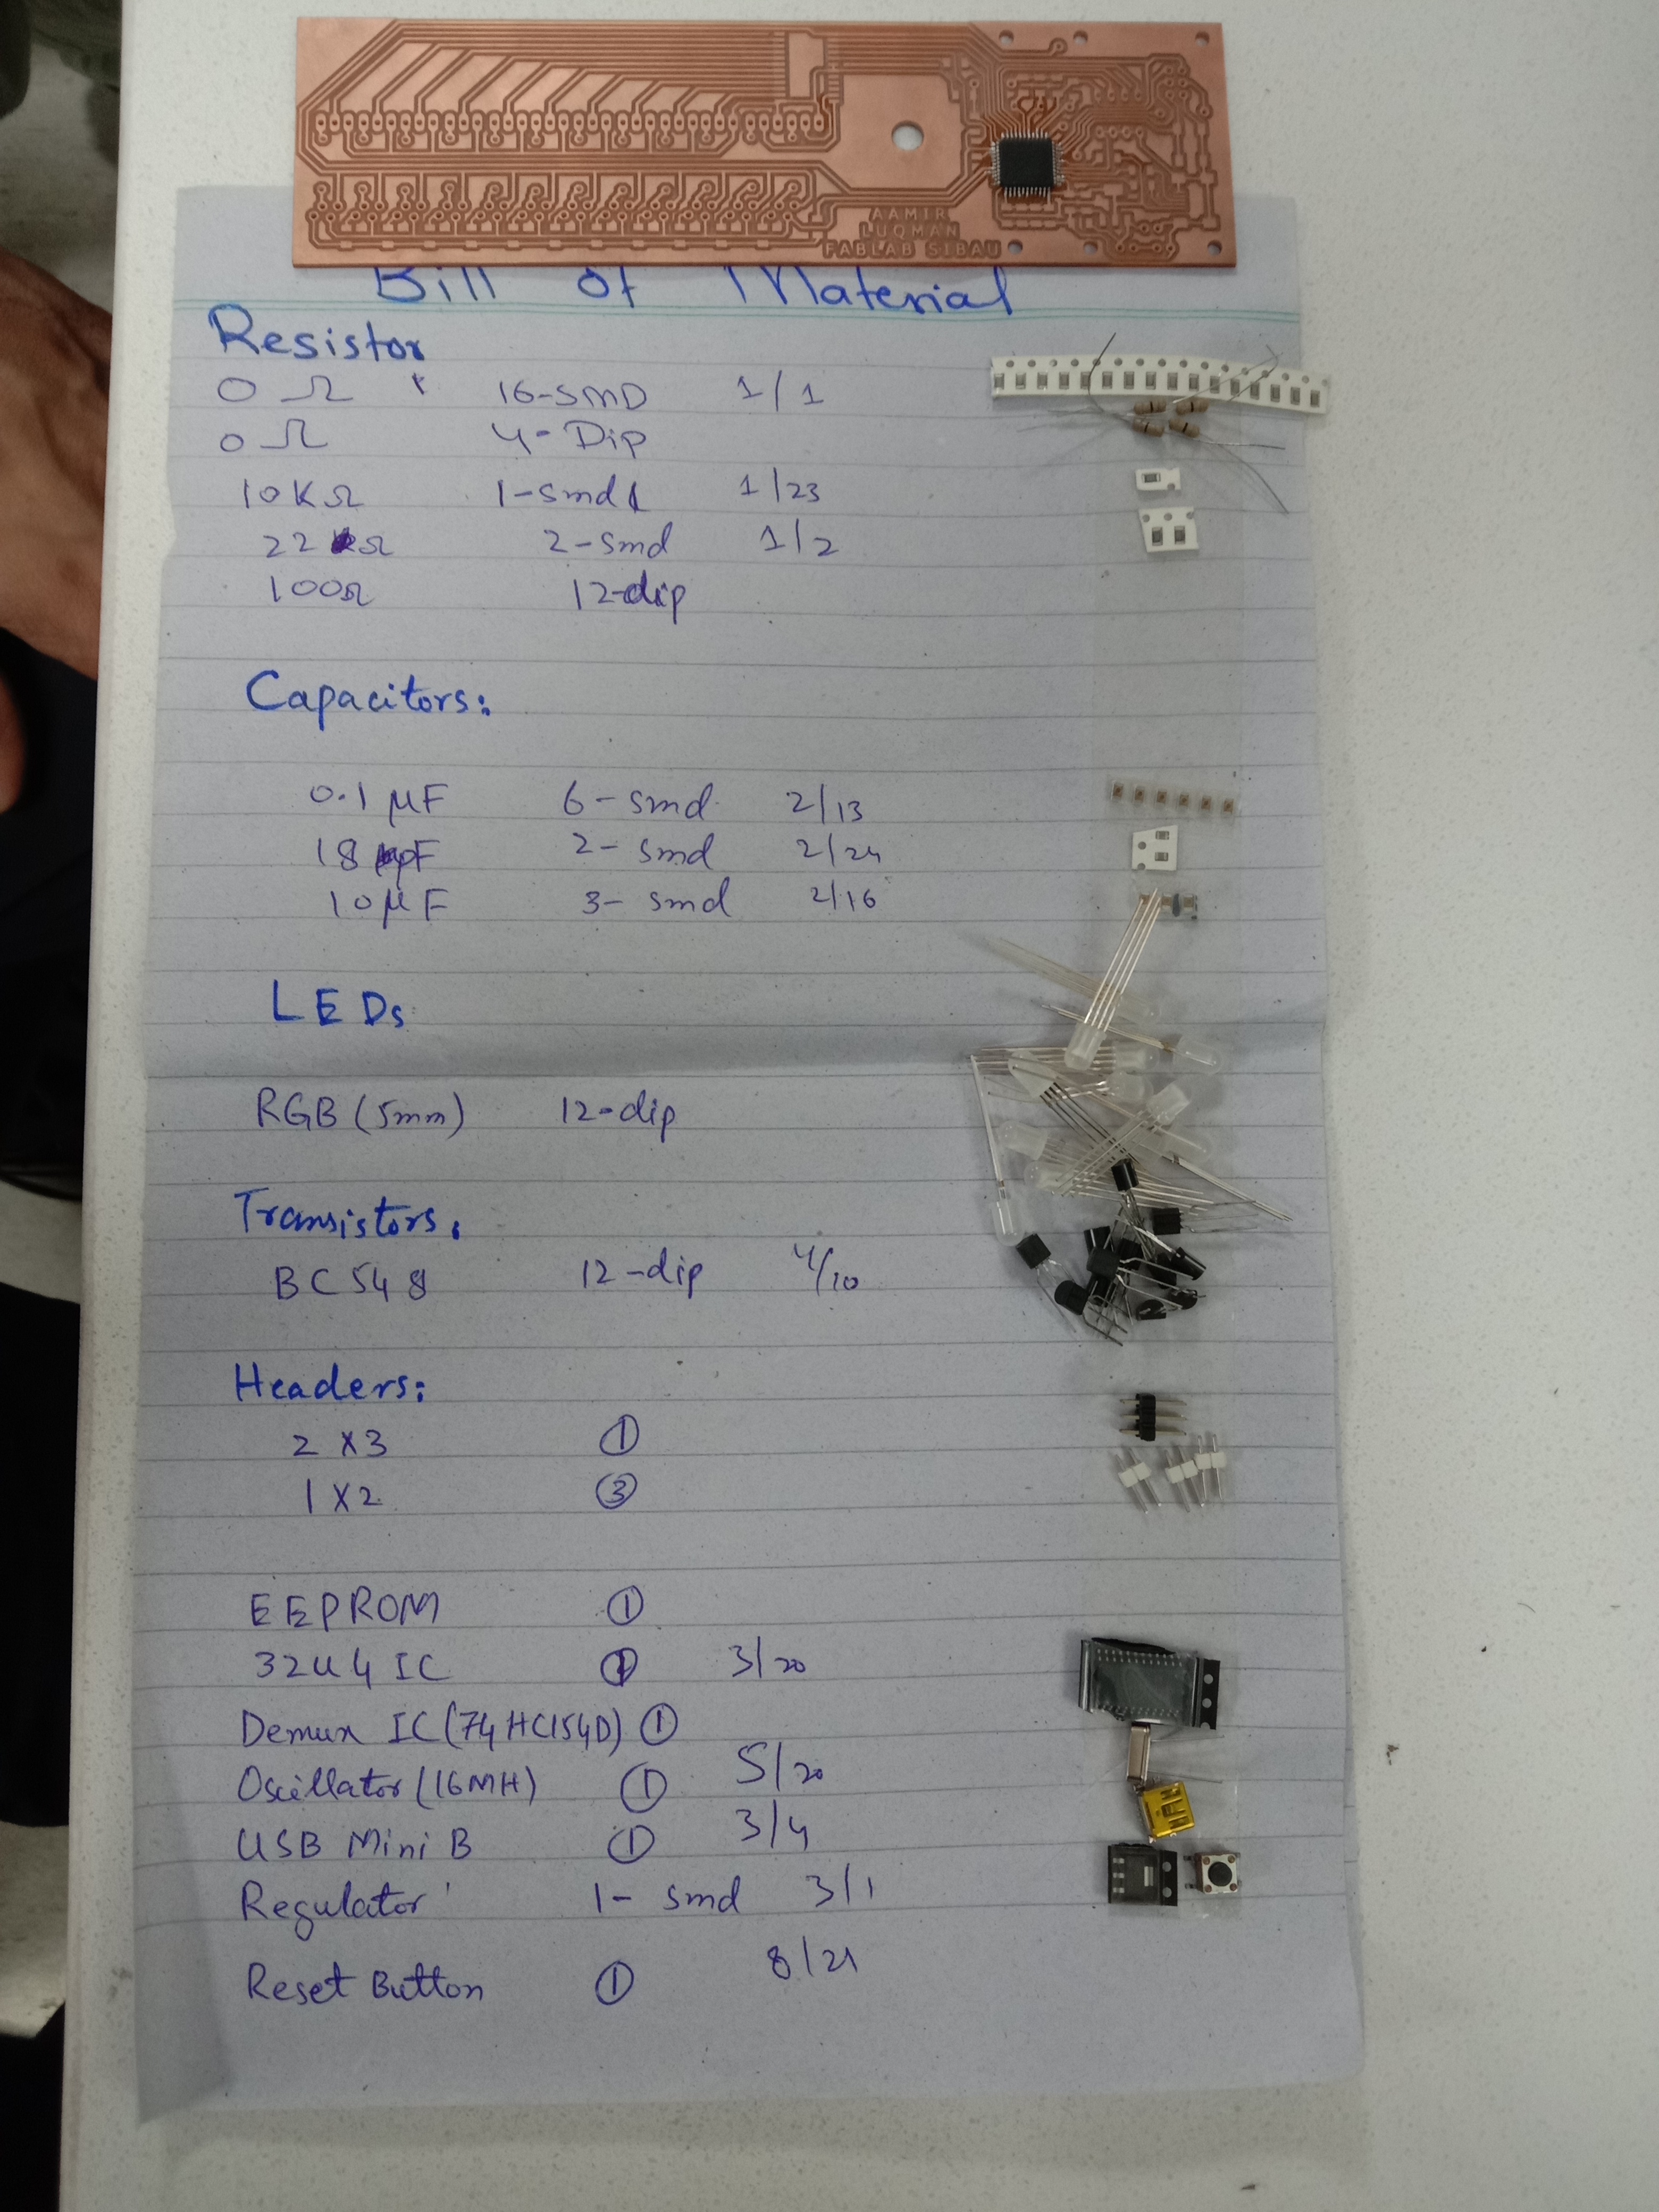 AAMIR
LUQMAN
FABLAB SIBAU
Bill of Material
Resistor
0 Ω 16-SMD 1/1
0 Ω 4-Dip
10KΩ 1-smd 1/23
22 Ω 2-smd 1/2
100Ω 12-dip
Capacitors:
0.1 µF 6-smd 2/13
18 pF 2-smd 2/24
10µF 3-smd 2/16
LEDs
RGB (5mm) 12-dip
Transistors:
BC548 12-dip 4/10
Headers:
2 X3 ①
1 X2 ③
EEPROM ①
32U4 IC ① 3/20
Demux IC (74HC154D) ①
Oscillator (16MH) ① 5/20
USB Mini B ① 3/4
Regulator 1- smd 3/1
Reset Button ① 8/21